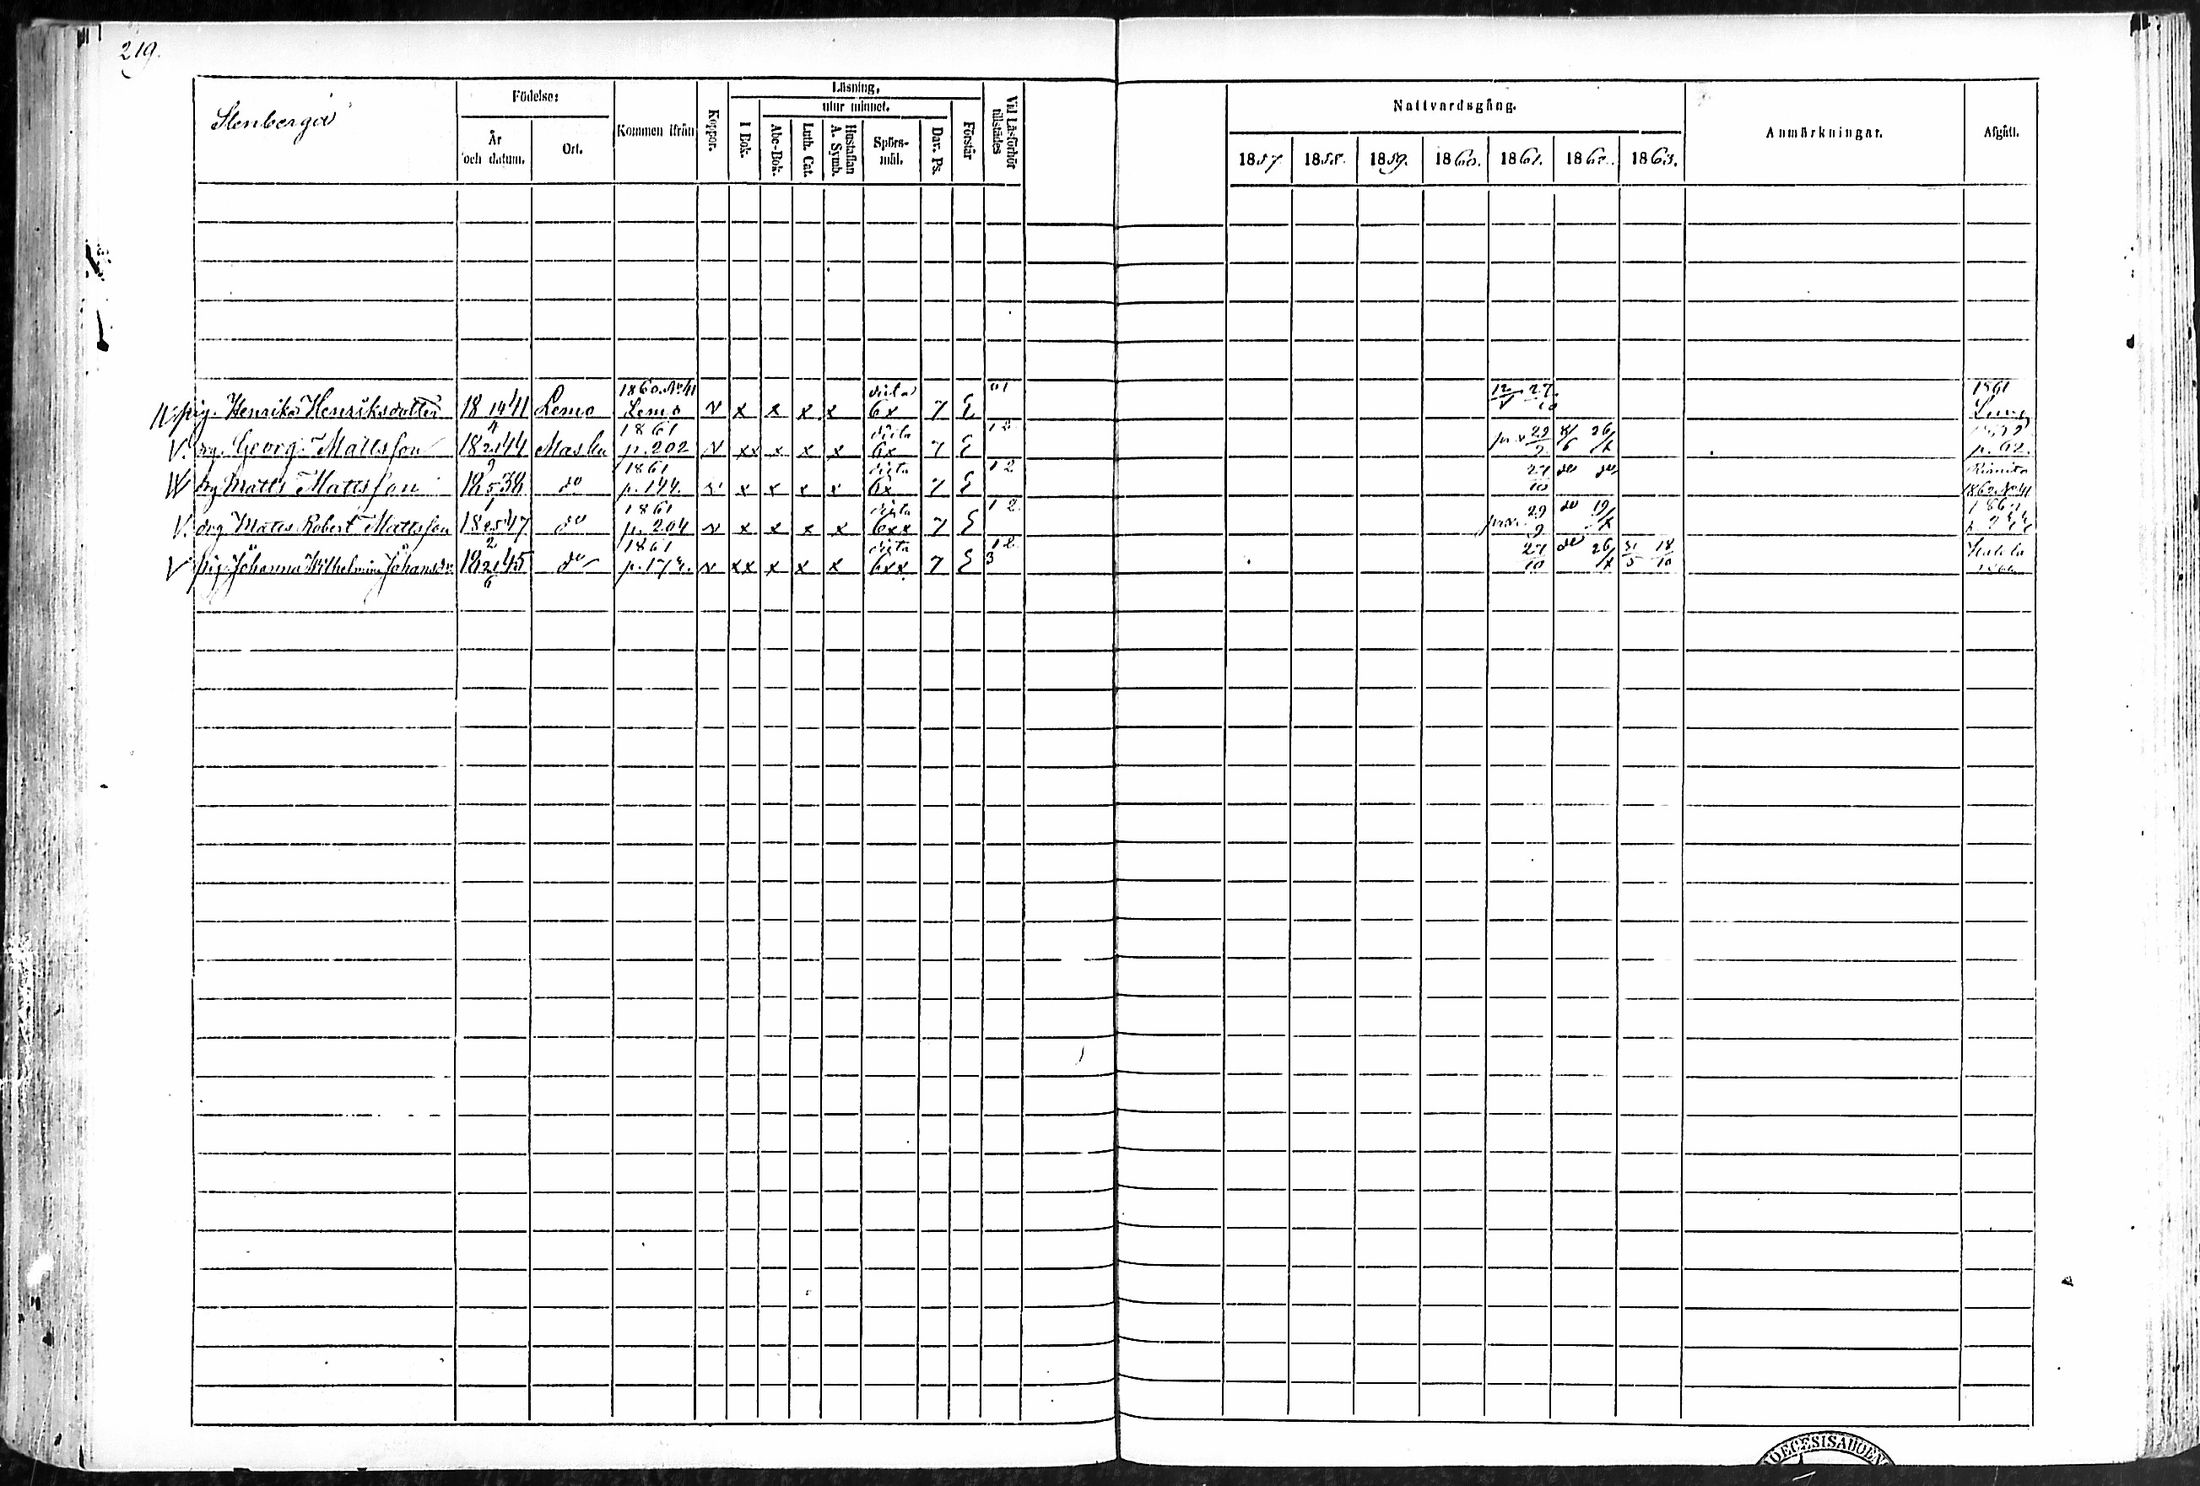 219.
Stenberga
Födelse:
År och datum.
Ort.
Kommen ifrån
Koppor.
Läsning,
I Bok.
utur minnet.
Abc-Bok.
Luth. Cat.
Hustaflan A. Symb.
Spörsmål.
Dav. Ps.
Förstår
Vid Läsförhör tillstädes
Nattvardsgång.
1857. 1858. 1859. 1860. 1861. 1862. 1863.
Anmärkningar.
Afgått.
pig. Henrika Henriksdotter 18 14/4 41 Lemo 1860. No 41 Lemo v x x x x dito 6x 7 E "1 27/10 1861
V. drg. Georg Mattsson 18 21/9 44 Masku 1861 p. 202 v xx x x x dito 6x 7 E 12 29/9 8/6 26/X p. 62.
drg Matts Mattsson 18 5/1 38 do 1861 p. 194. v x x x x dito 6x 7 E 12 27/10 do do Rimito 1862 No 41
V. drg Matts Robert Mattsson 18 25/2 47 do 1861 p. 204 v x x x x dito 6xx 7 E 12 29/9 do 19/X
V pig. Johanna Wilhelmina Johansdr. 18 21/6 45 do 1861 p. 178. v xx x x x dito 6xx 7 E 12 3 27/10 do 26/X 31/5 18/10
DIOECESIS ABOEN